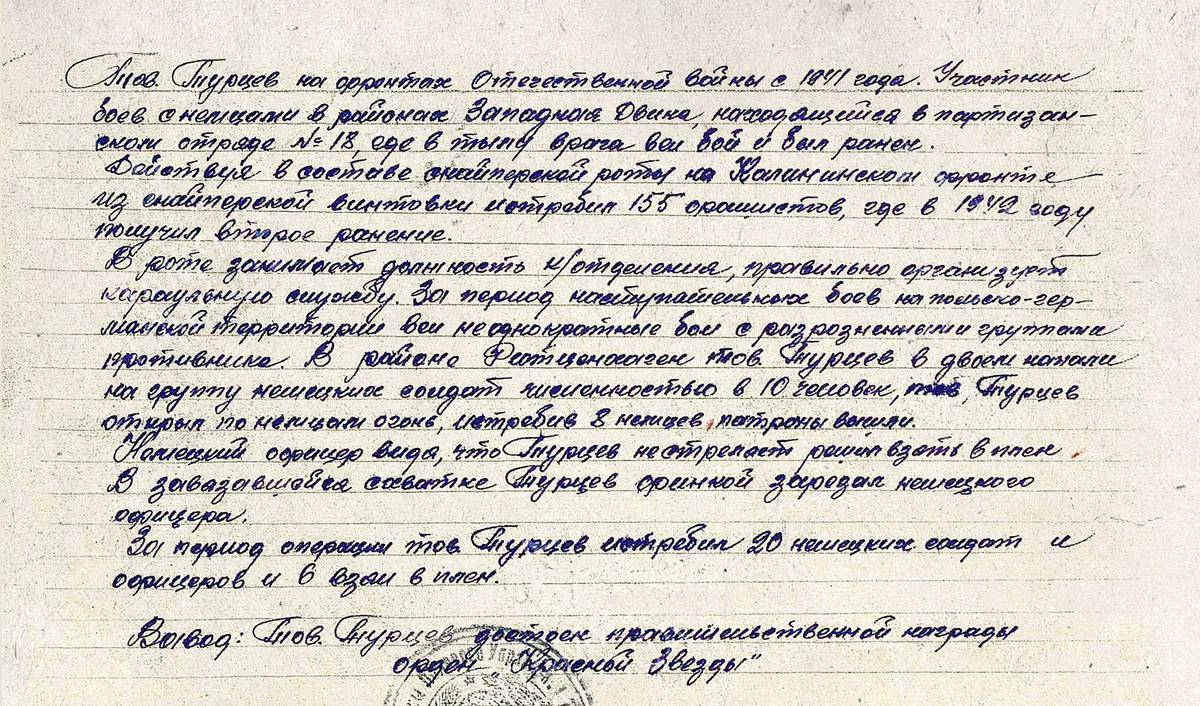 Тов. Турцев на фронтах Отечественной войны с 1941 года. Участник
боев с немцами в районах Западная Двина, находящийся в партизан-
ском отряде № 18, где в тылу врага вел бой и был ранен.
Действуя в составе снайперской роты на Калининском фронте
из снайперской винтовки истребил 155 фашистов, где в 1942 году
получил второе ранение.
В роте занимает должность к/отделения, правильно организует
караульную службу. За период наступательных боев на польско-гер-
манской территории вел неоднократные бои с разрозненными группами
противника. В районе Ратценхаген тов. Турцев в двоем напали
на группу немецких солдат численностью в 10 человек, тов. Турцев
открыл по немцам огонь, истребив 8 немцев, патроны вышли.
Немецкий офицер видя, что Турцев не стреляет решил взять в плен
В завязавшейся схватке Турцев финкой зарезал немецкого
офицера.
За период операции тов. Турцев истребил 20 немецких солдат и
офицеров и 6 взял в плен.
Вывод: Тов. Турцев достоен правительственной награды
орден „Красной Звезды"